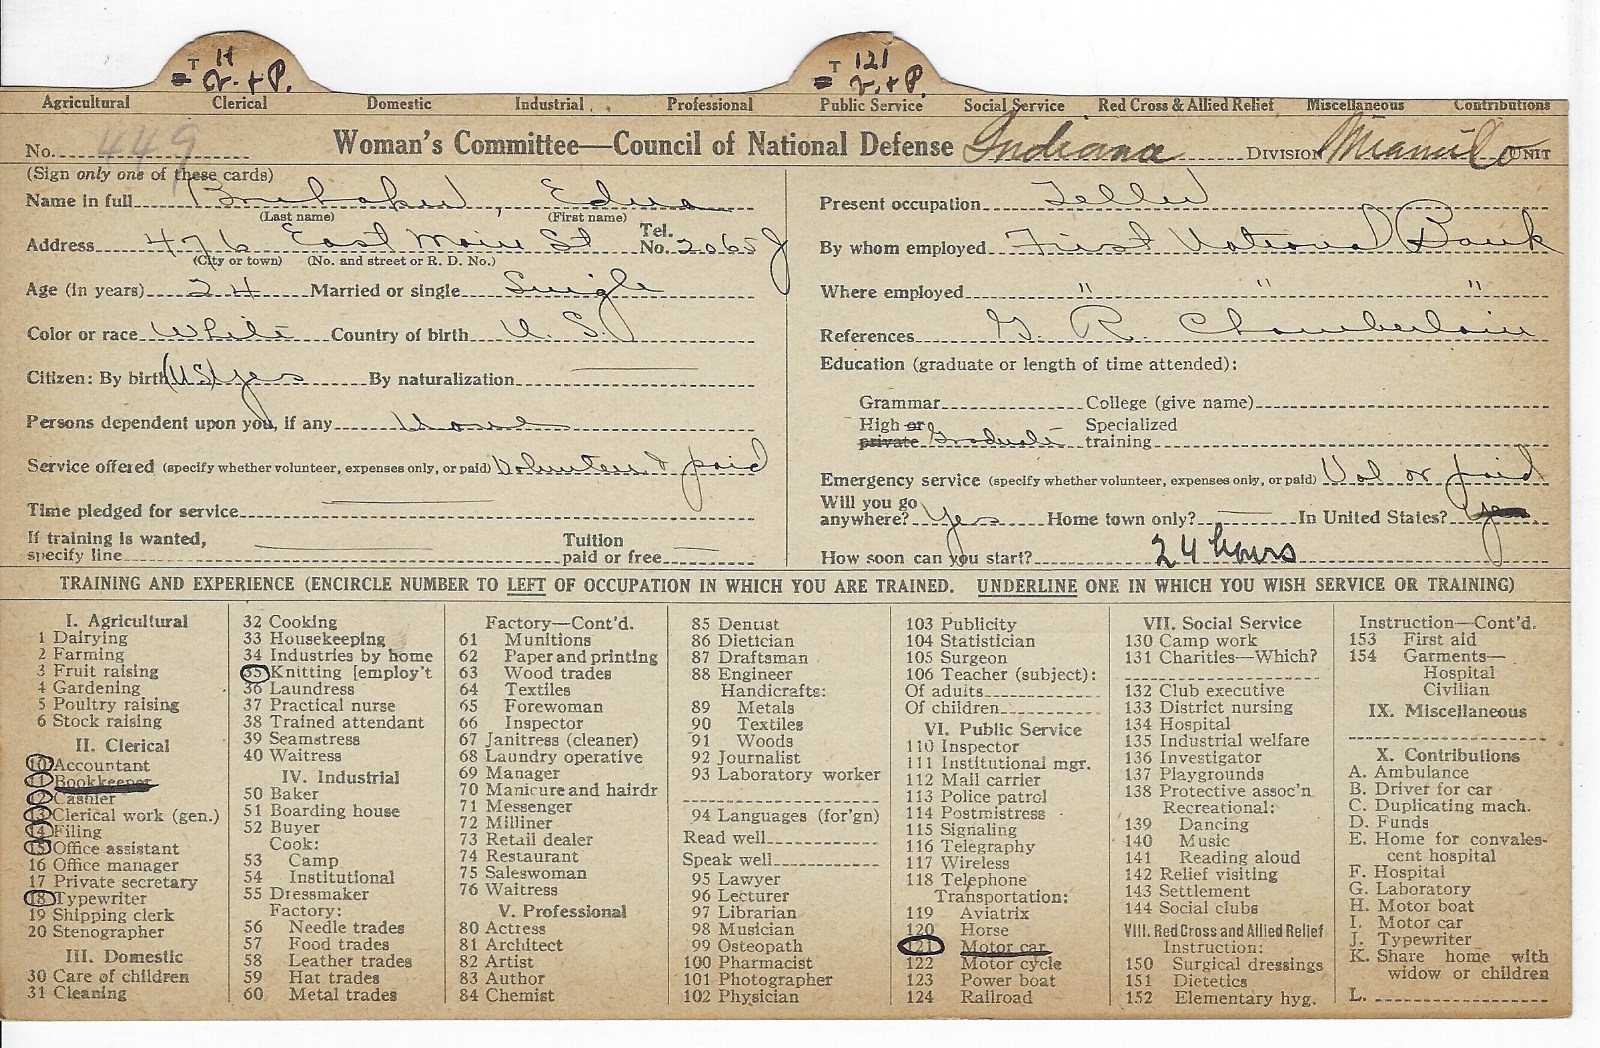 T 11
V. + P.
T 121
V. + P.
Agricultural Clerical Domestic Industrial Professional Public Service Social Service Red Cross & Allied Relief Miscellaneous Contributions
No. 449 Woman's Committee—Council of National Defense Indiana DIVISION Miami Co UNIT
(Sign only one of these cards)
Name in full Brubaker, Edna
(Last name) (First name)
Address 476 East Main St Tel. No. 2065 J
(City or town) (No. and street or R. D. No.)
Age (in years) 24 Married or single Single
Color or race White Country of birth U. S.
Citizen: By birth (US) yes By naturalization
Persons dependent upon you, if any None
Service offered (specify whether volunteer, expenses only, or paid) Volunteer & paid
Time pledged for service
If training is wanted, specify line Tuition paid or free
Present occupation Teller
By whom employed First National Bank
Where employed " " "
References G. R. Chamberlain
Education (graduate or length of time attended):
Grammar College (give name)
High or private Graduate Specialized training
Emergency service (specify whether volunteer, expenses only, or paid) Vol or paid
Will you go anywhere? Yes Home town only? In United States? yes
How soon can you start? 24 hours
TRAINING AND EXPERIENCE (ENCIRCLE NUMBER TO LEFT OF OCCUPATION IN WHICH YOU ARE TRAINED. UNDERLINE ONE IN WHICH YOU WISH SERVICE OR TRAINING)
I. Agricultural
1 Dairying
2 Farming
3 Fruit raising
4 Gardening
5 Poultry raising
6 Stock raising
II. Clerical
10 Accountant
11 Bookkeeper
12 Cashier
13 Clerical work (gen.)
14 Filing
15 Office assistant
16 Office manager
17 Private secretary
18 Typewriter
19 Shipping clerk
20 Stenographer
III. Domestic
30 Care of children
31 Cleaning
32 Cooking
33 Housekeeping
34 Industries by home
35 Knitting [employ't
36 Laundress
37 Practical nurse
38 Trained attendant
39 Seamstress
40 Waitress
IV. Industrial
50 Baker
51 Boarding house
52 Buyer
Cook:
53 Camp
54 Institutional
55 Dressmaker
Factory:
56 Needle trades
57 Food trades
58 Leather trades
59 Hat trades
60 Metal trades
Factory—Cont'd.
61 Munitions
62 Paper and printing
63 Wood trades
64 Textiles
65 Forewoman
66 Inspector
67 Janitress (cleaner)
68 Laundry operative
69 Manager
70 Manicure and hairdr
71 Messenger
72 Milliner
73 Retail dealer
74 Restaurant
75 Saleswoman
76 Waitress
V. Professional
80 Actress
81 Architect
82 Artist
83 Author
84 Chemist
85 Dentist
86 Dietician
87 Draftsman
88 Engineer
Handicrafts:
89 Metals
90 Textiles
91 Woods
92 Journalist
93 Laboratory worker
94 Languages (for'gn)
Read well
Speak well
95 Lawyer
96 Lecturer
97 Librarian
98 Musician
99 Osteopath
100 Pharmacist
101 Photographer
102 Physician
103 Publicity
104 Statistician
105 Surgeon
106 Teacher (subject):
Of adults
Of children
VI. Public Service
110 Inspector
111 Institutional mgr.
112 Mail carrier
113 Police patrol
114 Postmistress
115 Signaling
116 Telegraphy
117 Wireless
118 Telephone
Transportation:
119 Aviatrix
120 Horse
121 Motor car
122 Motor cycle
123 Power boat
124 Railroad
VII. Social Service
130 Camp work
131 Charities—Which?
132 Club executive
133 District nursing
134 Hospital
135 Industrial welfare
136 Investigator
137 Playgrounds
138 Protective assoc'n
Recreational:
139 Dancing
140 Music
141 Reading aloud
142 Relief visiting
143 Settlement
144 Social clubs
VIII. Red Cross and Allied Relief
Instruction:
150 Surgical dressings
151 Dietetics
152 Elementary hyg.
Instruction—Cont'd.
153 First aid
154 Garments—
Hospital
Civilian
IX. Miscellaneous
X. Contributions
A. Ambulance
B. Driver for car
C. Duplicating mach.
D. Funds
E. Home for convales-
cent hospital
F. Hospital
G. Laboratory
H. Motor boat
I. Motor car
J. Typewriter
K. Share home with
widow or children
L.